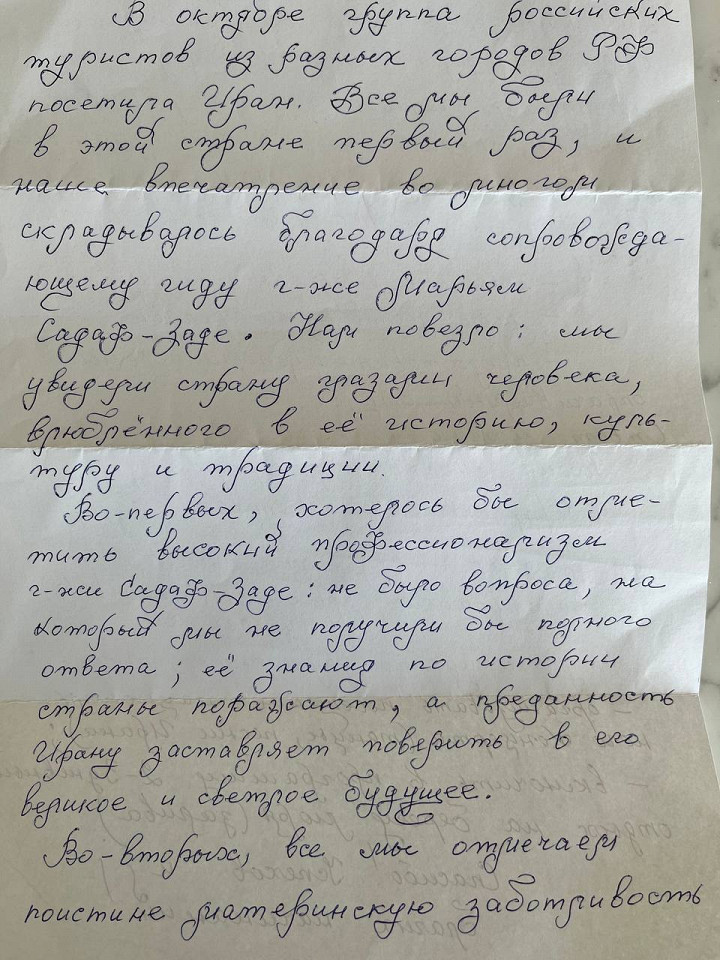 В октябре группа российских
туристов из разных городов РФ
посетила Иран. Все мы были
в этой стране первый раз, и
наше впечатление во многом
складывалось благодаря сопровожда-
ющему гиду г-же Марьям
Садаф-Заде. Нам повезло: мы
увидели страну глазами человека,
влюблённого в её историю, куль-
туру и традиции.
Во-первых, хотелось бы отме-
тить высокий профессионализм
г-жи Садаф-Заде: не было вопроса, на
который мы не получили бы полного
ответа; её знания по истории
страны поражают, а преданность
Ирану заставляет поверить в его
великое и светлое будущее.
Во-вторых, все мы отмечаем
поистине материнскую заботливость